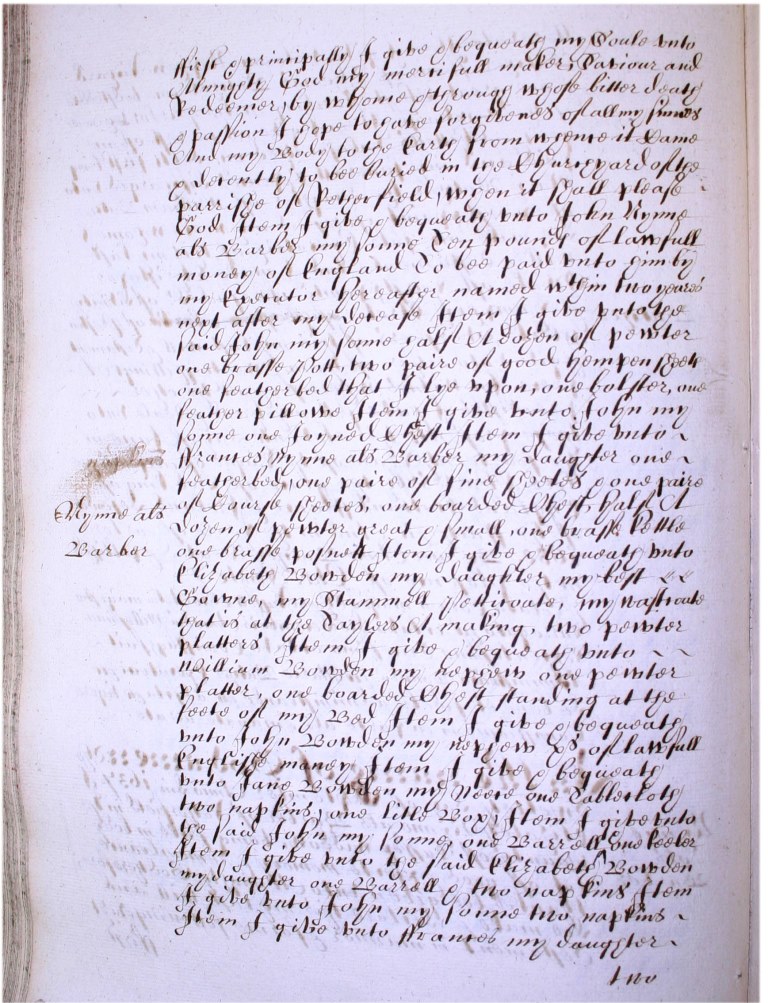 ffirst & principally I give & bequeath my Soule unto
Almighty God my mercifull maker Saviour and
Redeemer, by whome & through whose bitter death
& passion I hope to have forgivenes of all my sinnes
And my Body to the Earth from whence it Came
& decently to bee buried in the Churchyard of the
parrishe of Petherfield, when it shall please
God Item I give & bequeath unto John Nynne
als Barber my sonne Ten pounds of lawfull
money of England To bee paid unto him by
my Executor hereafter named within two yeares
next after my decease Item I give unto the
said John my sonne half A dozen of pewter
one brasse Pott, two paire of good Hempen sheets
one featherbed that I lye upon, one bolster, one
feather pillowe Item I give unto John my
sonne one Joyned Chest Item I give unto
ffrances Nynne als Barber my daughter one
featherbed, one paire of fine sheetes & one paire
of Course sheetes, one boarded Chest, half A
Nynne als
Barber
dozen of pewter great & small, one brasse kettle
one brasse posnett Item I give & bequeath unto
Elizabeth Bowden my daughter my best
Gowne, my Stammell Petticoate, my wastcoate
that is at the Taylers A making, two pewter
platters Item I give & bequeath unto
William Bowden my nephew one pewter
platter, one boarded Chest standing at the
feete of my Bed Item I give & bequeath
unto John Bowden my nephew of lawfull
Englishe money Item I give & bequeath
unto Jane Bowden my Neece one Tablecloth
two napkins, one litle Box, Item I give unto
the said John my sonne, one Barrell one keeler
Item I give unto the said Elizabeth Bowden
my daughter one Barrell & two napkins Item
I give unto John my sonne two napkins
Item I give unto ffrances my daughter
two